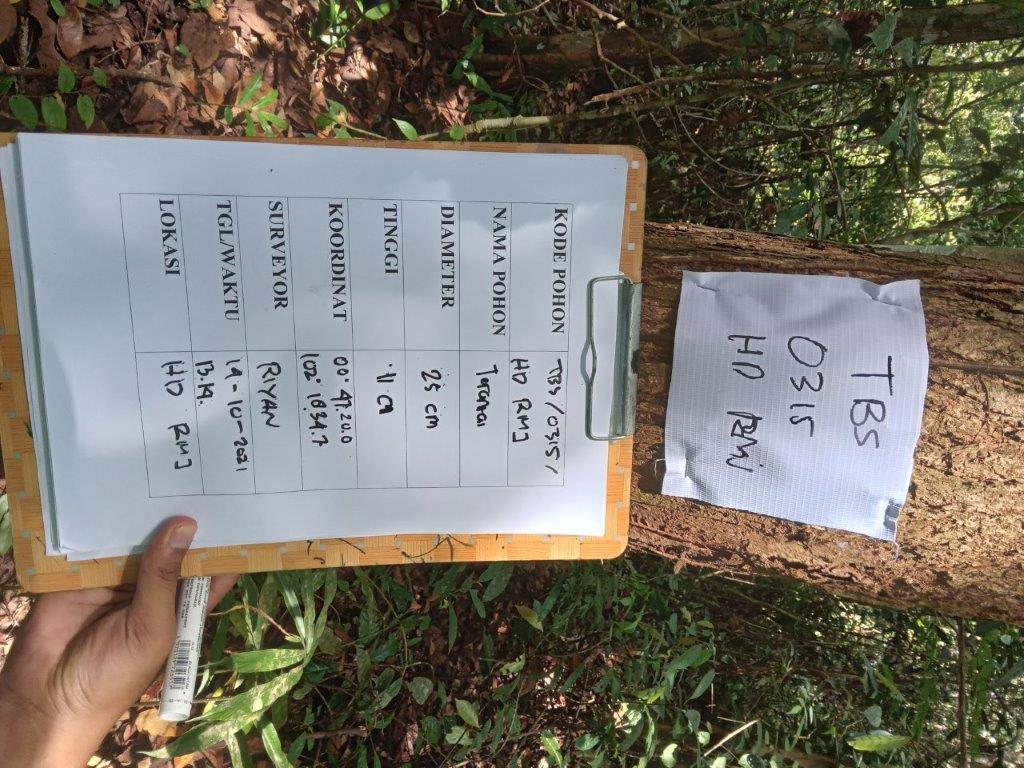 TBS
0315
HD RMJ
KODE POHON TBS/0315/
HD RMJ
NAMA POHON Terantai
DIAMETER 25 cm
TINGGI 11
KOORDINAT 00° 47.20.0
102° 1834.7
SURVEYOR RIYAN
TGL/WAKTU 14-10-2021
13.14.
LOKASI HD RMJ